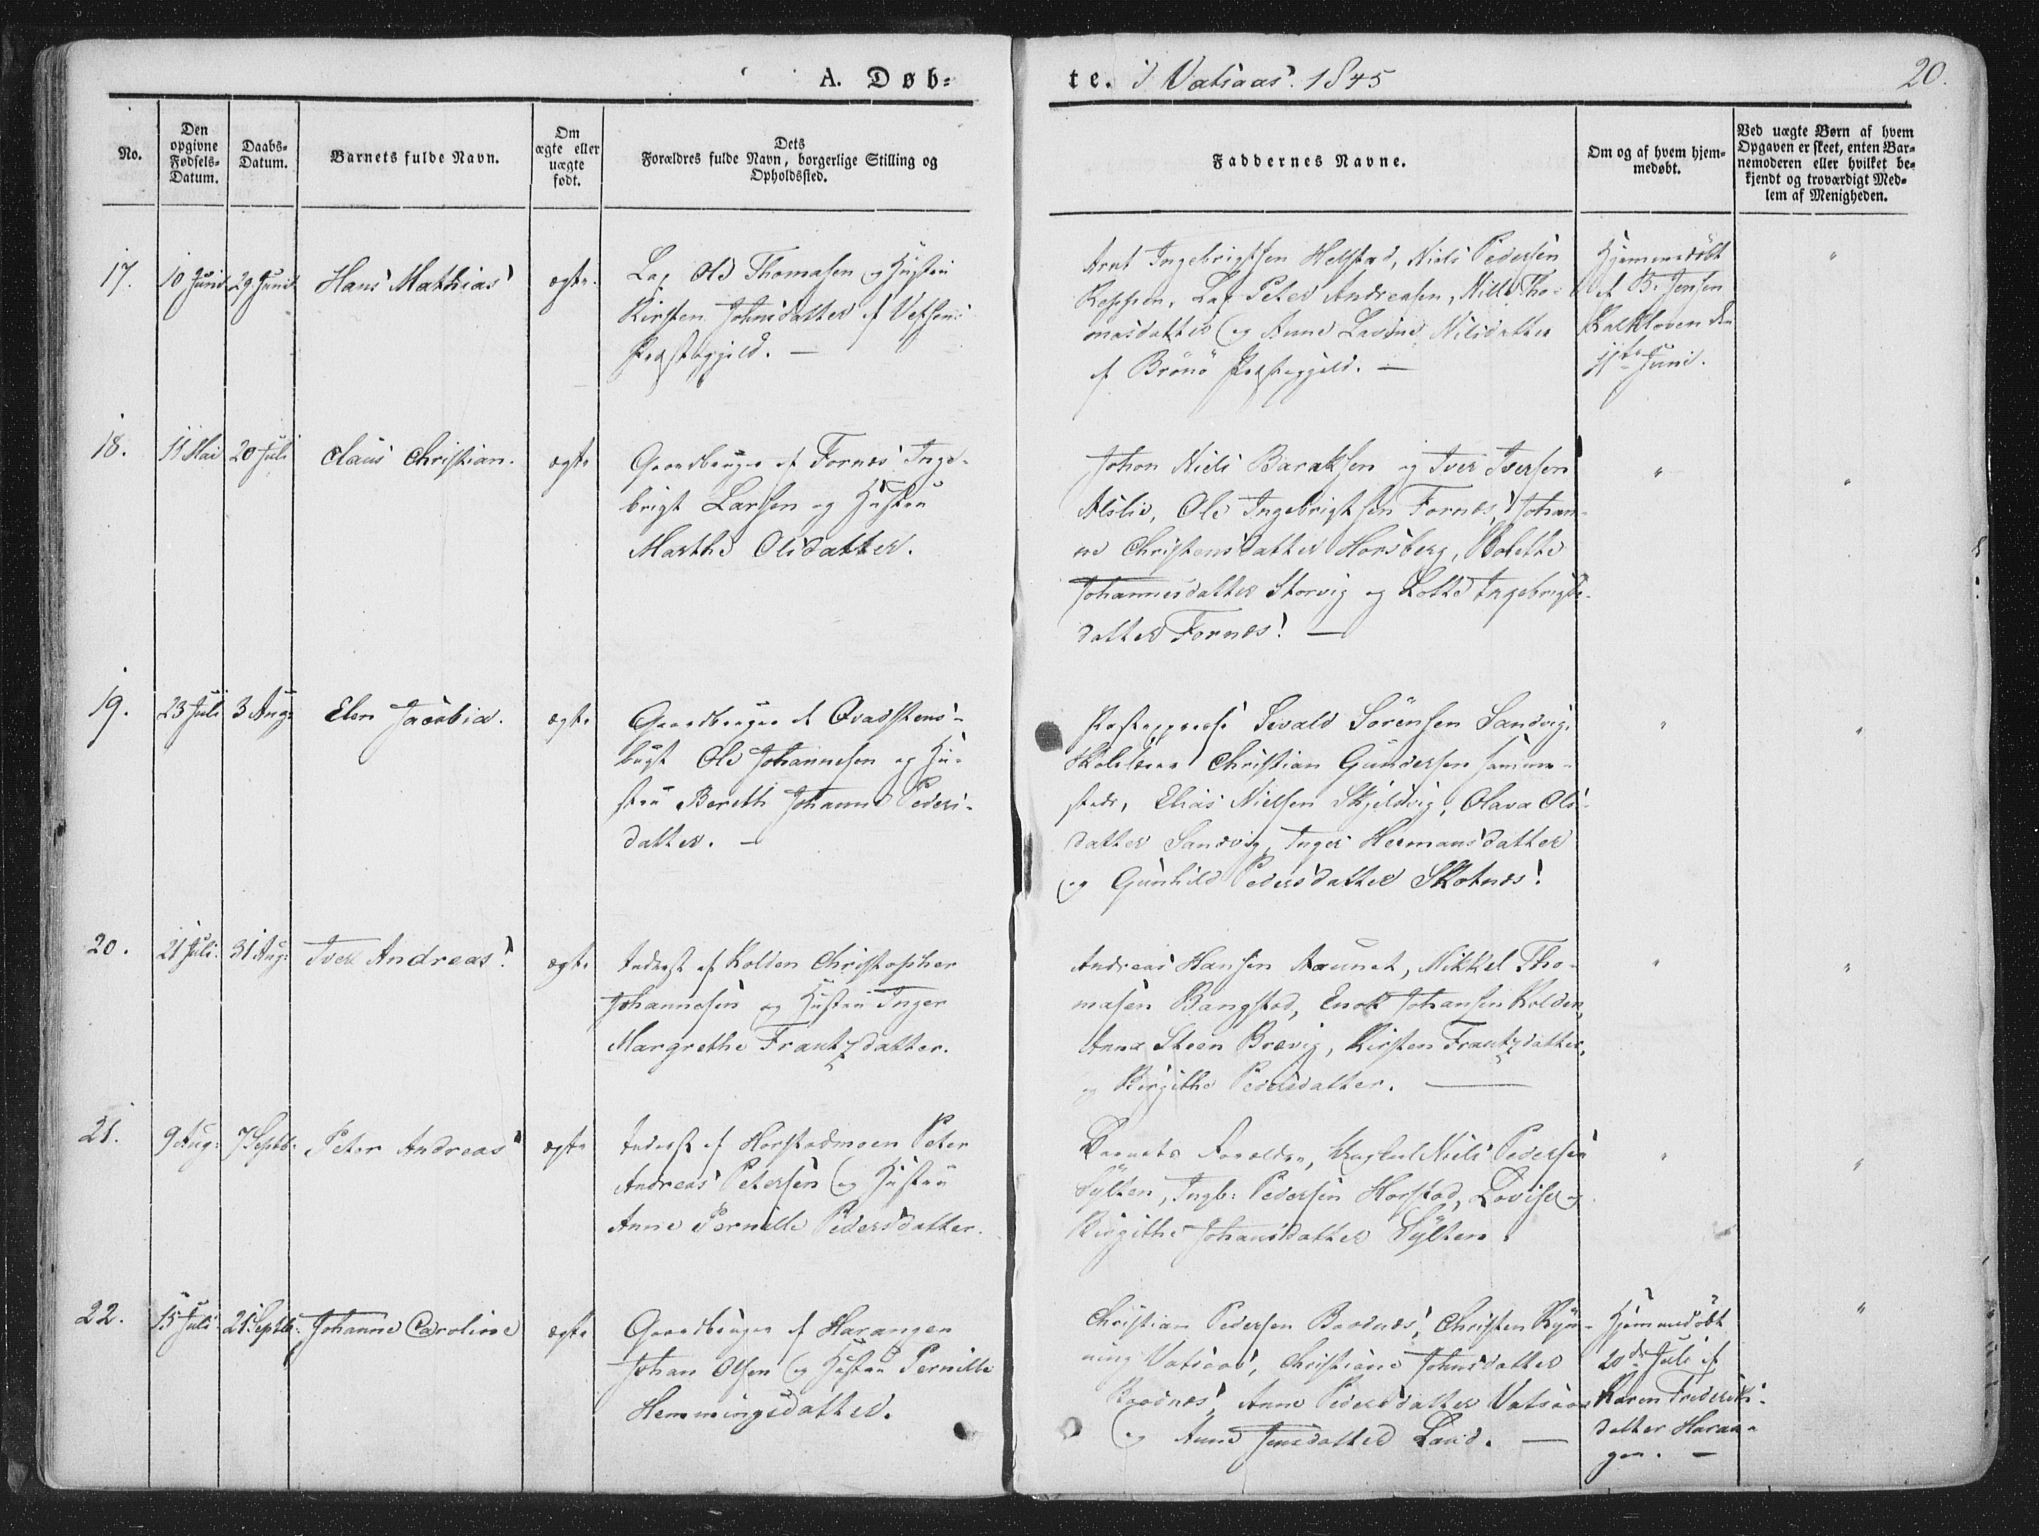 A. Døb-
te. i Vatsaas. 1845
20.
No.
Den opgivne Fødsels-Datum.
Daabs-Datum.
Barnets fulde Navn.
Om ægte eller uægte født.
Dets
Forældres fulde Navn, borgerlige Stilling og
Opholdssted.
Faddernes Navne.
Om og af hvem hjem-
medøbt.
Ved uægte Børn af hvem
Opgaven er skeet, enten Bar-
nemoderen eller hvilket be-
kjendt og troværdigt Med-
lem af Menigheden.
17.
10 Juni
29 Juni
Hans Mathias
ægte.
Lap Ole Thomasen og Hustru
Kirsten Johnsdatter af
Præstegjeld. —
Arnt Ingebrigtsen Helstad, Niels Pedersen
Lap Peter Andreasen, Tho-
masdatter og Anne Lavine Nilsdatter
af Brönö Præstegjeld. —
Hjemmedöbt
af B. Jensen
Kalkloven den
11te Juni.
"
18.
11 Mai
20 Juli
Claus Christian.
ægte
Gaardbruger af Fornes Inge-
brigt Larsen og Hustru
Marthe Olsdatter.
Johan Niels Baraksen og Iver Iversen
Alslie, Ole Ingebrigtsen Fornes, Johan-
ne Christensdatter Horsberg, Bolette
Johannesdatter Storvig og Lotte Ingebrigts-
datter Fornes. —
"
"
19.
23 Juli
3 Aug:
Elen Jacobia.
ægte
Gaardbruger af Qvadstens-
bugt Ole Johannesen og Hu-
stru Bereth Johanne Peders-
datter. —
Sivald Sörensen Sandvig,
Skolelærer Christian Gundersen samme-
steds, Elias Nielsen Skjeldvig, Olava Ols-
datter Sandvig, Inger Hermansdatter
og Gunhild Pedersdatter Skotnes.
"
"
20.
21 Juli.
31 Aug:
Iver Andreas.
ægte
Inderst af Kolden Christopher
Johannesen og Hustru Inger
Margrethe Frantzdatter.
Andreas Hansen Aaunet, Mikkel Tho-
masen Bangstad, Enok Johansen Kolden,
Anna Steen Brevig, Kirsten Frantzdatter,
og Birgithe Pedersdatter. —
"
"
21.
9 Aug:
7 Septb:
Peter Andreas
ægte
Inderst af Horstadmoen Peter
Andreas Petersen og Hustru
Anne Pernille Pedersdatter.
Barnets Forældre, Niels Pedersen
Sylten, Ingb: Pedersen Horstad, Lovise og
Birgithe Johansdatter Sylten.
"
"
22.
15 Juli
21 Septb:
Johanne Caroline
ægte
Gaardbruger af Harangen
Johan Olsen og Hustru Pernille
Hemmingsdatter.
Christian Pedersen Baadnes, Christen Ryn-
ning Vatsaas, Christiane Johnsdatter
Baadnes, Anne Pedersdatter Vatsaas
og Anne Jensdatter Land. —
Hjemmedöbt
20de Juli af
Karen Frederiks-
datter Haran-
gen. —
"